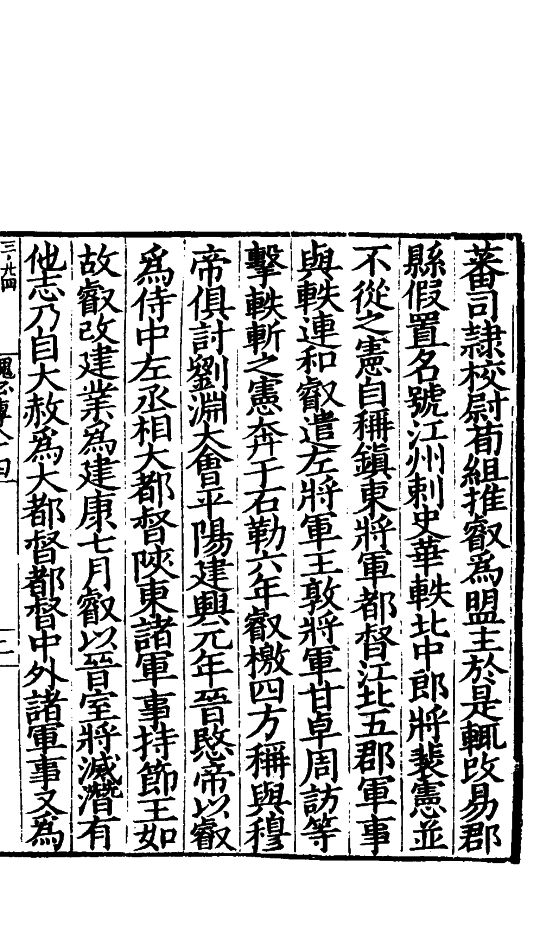 蕃司隷校尉荀組推叡爲盟主於是輒改易郡
縣假置名號江州刺史華軼北中郎將裴憲並
不從之憲自稱鎮東將軍都督江北五郡軍事
與軼連和叡遣左將軍王敦將軍甘卓周訪等
擊軼斬之憲奔于石勒六年叡檄四方稱與穆
帝俱討劉淵大會平陽建興元年晉愍帝以叡
爲侍中左丞相大都督陝東諸軍事持節王如
故叡改建業爲建康七月叡以晉室將滅潛有
他志乃自大赦爲大都督都督中外諸軍事又爲
三·廿四